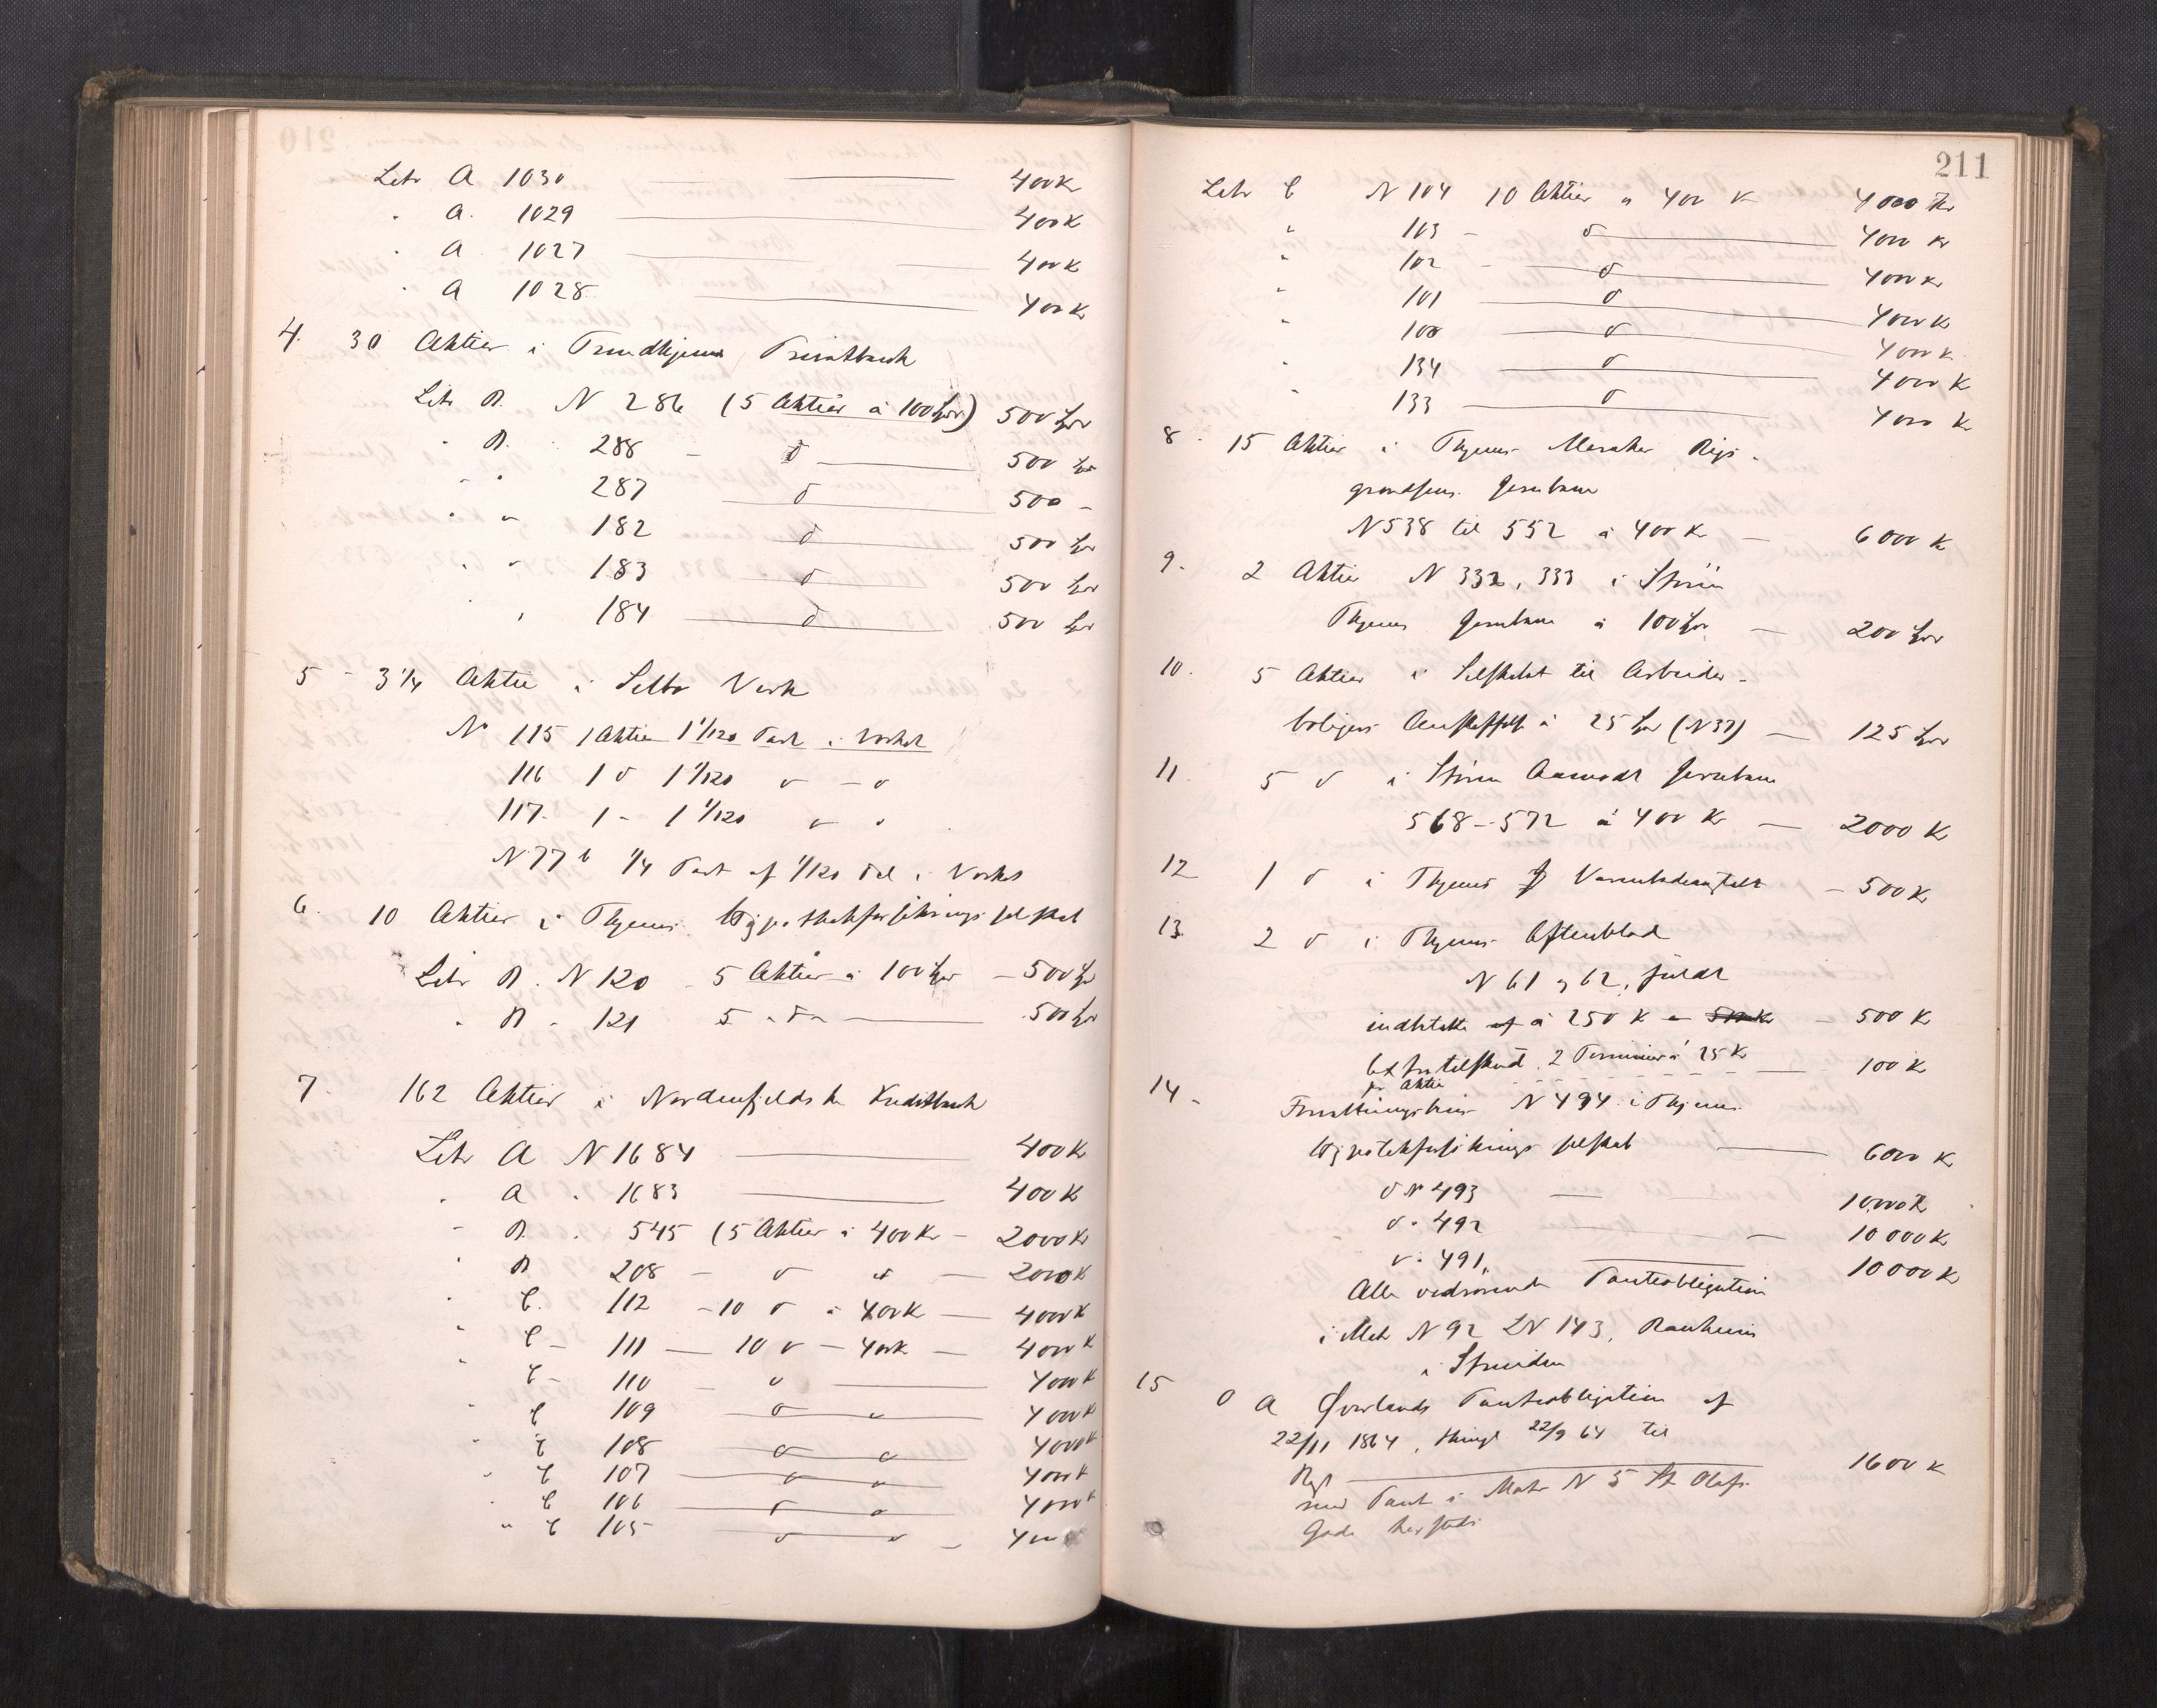 Litr A 1030 — 400 Kr
" A. 1029 — 400 K
" A 1027 — 400 K
" A 1028 — 400 K
4. 30 Aktier i Trondhjems Privatbank
Litr B. N 286 (5 Aktier à 100 Spr) 500 Spr
" B. 288 — d — 500 Spr
" " 287 — d — 500 -
" " 182 — d — 500 Spr
" " 183 — d — 500 Spr
" 184 — d — 500 Spr
5 - 3 1/4 Aktie i Selbo Verk
No 115 1 Aktie 1 1/120 Part i Verket
116 1 d 1 1/120 d - d
117. 1 - 1 1/120 d "
N 77 b 1/4 Part af 1/120 Del i Verket
6. 10 Aktier i Thjems Hypothekforsikringsselskab
Litr B. N 120 5 Aktier à 100 Spr — 500 Spr
" B " 121 5 - d - — 500 Spr
7. 162 Aktier i Nordenfjeldske Kreditbank
Litr A N 1684 — 400 K
" A " 1683 — 400 K
" B. " 545 (5 Aktier à 400 Kr — 2000 K
" B 208 — d d — 2000 K
" C. 112 - 10 d à 400 K — 4000 K
" C - 111 — 10 d — 400 K — 4000 K
" C - 110 — d — 4000 K
" C 109 — d " — 4000 K
" C 108 — d d — 4000 K
" C 107 — d " — 4000 K
" C 106 — d " — 4000 K
" C 105 — d d — 4000
211
Litr C N 104 10 Aktier à 400 K 4000 Kr
" 103 - d — 4000 K
" 102 - d — 4000 K
" 101 — d — 4000 K
" 100 — d — 4000 K
" 134 — d — 4000 K
" 133 — d — 4000 K
8. 15 Aktier i Thjems Meraker Rigs-
grændsens Jernbane
N 538 til 552 à 400 K — 6000 K
9. 2 Aktier N 332, 333 i Støren
Thjems Jernbane à 100 Spr — 200 Spr
10. 5 Aktier i Selskabet til Arbeider-
boligers à 25 Spr (N 37) — 125 Spr
11. 5 d i Støren Aamodt Jernbane
568-572 à 400 K — 2000 K
12 1 d i Thjems — 500 K
13. 2 d i Thjems Aftenblad
N 61 og 62, fuldt
indbetalte af à 250 K — 500 K
Extratilskud 2 Terminer à 25 K — 100 K
pr Aktie
14. Forsikringsbrev N 494 i Thjems
Hypothekforsikringsselskab — 6000 K
d N 493 — 10000 K
d " 492 — 10000 K
d " 491, — 10000 K
Alle vedrørende Panteobligation
i Matr N 92 LN 143, Ranheim
i Strinden
15 O A Øverlands Panteobligation af
22/11 1864, thingl 22/9 64 til
— 1600 K
med Pant i Matr N 5 St Olafs
Gade hersteds